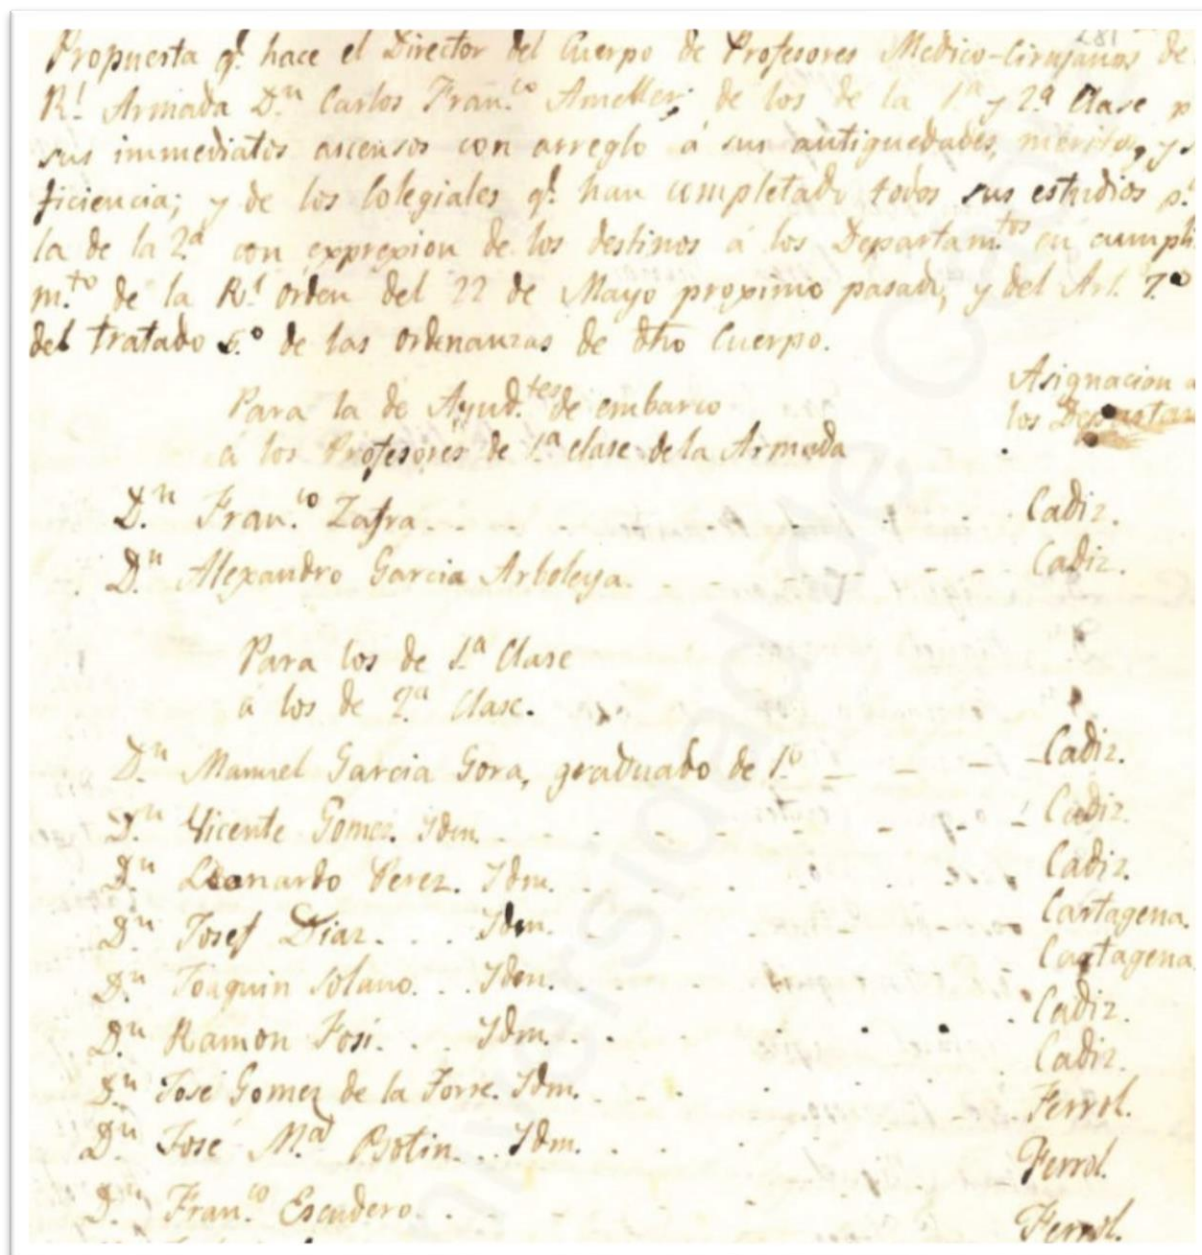 Propuesta q.e hace el Director del Cuerpo de Profesores Medico-Cirujanos de
R.l Armada D.n Carlos Fran.co Ameller, de los de la 1.a y 2.a Clase p
sus immediatos ascensos con arreglo á sus antiguedades, meritos, y s
ficiencia; y de los Colegiales q.e han completado todos sus estudios p.a
la de la 2.a con exprexion de los destinos á los Departam.tos en cumpli
m.to de la R.l orden del 22 de Mayo proximo pasado, y del Art. 7.o
del tratado 5.o de las ordenanzas de dho Cuerpo.
Asignacion a
los Departam
Para la de Ayud.tes de embarco
á los Profesores de 1.a clase de la Armada
D.n Fran.co Zafra - - - Cadiz.
D.n Alexandro Garcia Arboleya. - - - Cadiz.
Para los de 1.a Clase
á los de 2.a Clase.
D.n Manuel Garcia Gora, graduado de 1.o - - - Cadiz.
D.n Vicente Gomez. Idm. - - - Cadiz.
D.n Leonardo Perez. Idm. - - - Cadiz.
D.n Josef Diaz. . . Idm. - - - Cartagena.
D.n Joaquin Solano. . . Idm. Cartagena
D.n Ramon Fosi. . . Idm. . . . Cadiz.
Cadiz.
D.n José Gomez de la Torre. Idm. . . . Ferrol.
D.n José M.a Botin. . . Idm. . . . Ferrol.
D.n Fran.co Escudero. . . . Ferrol.
Universidad de